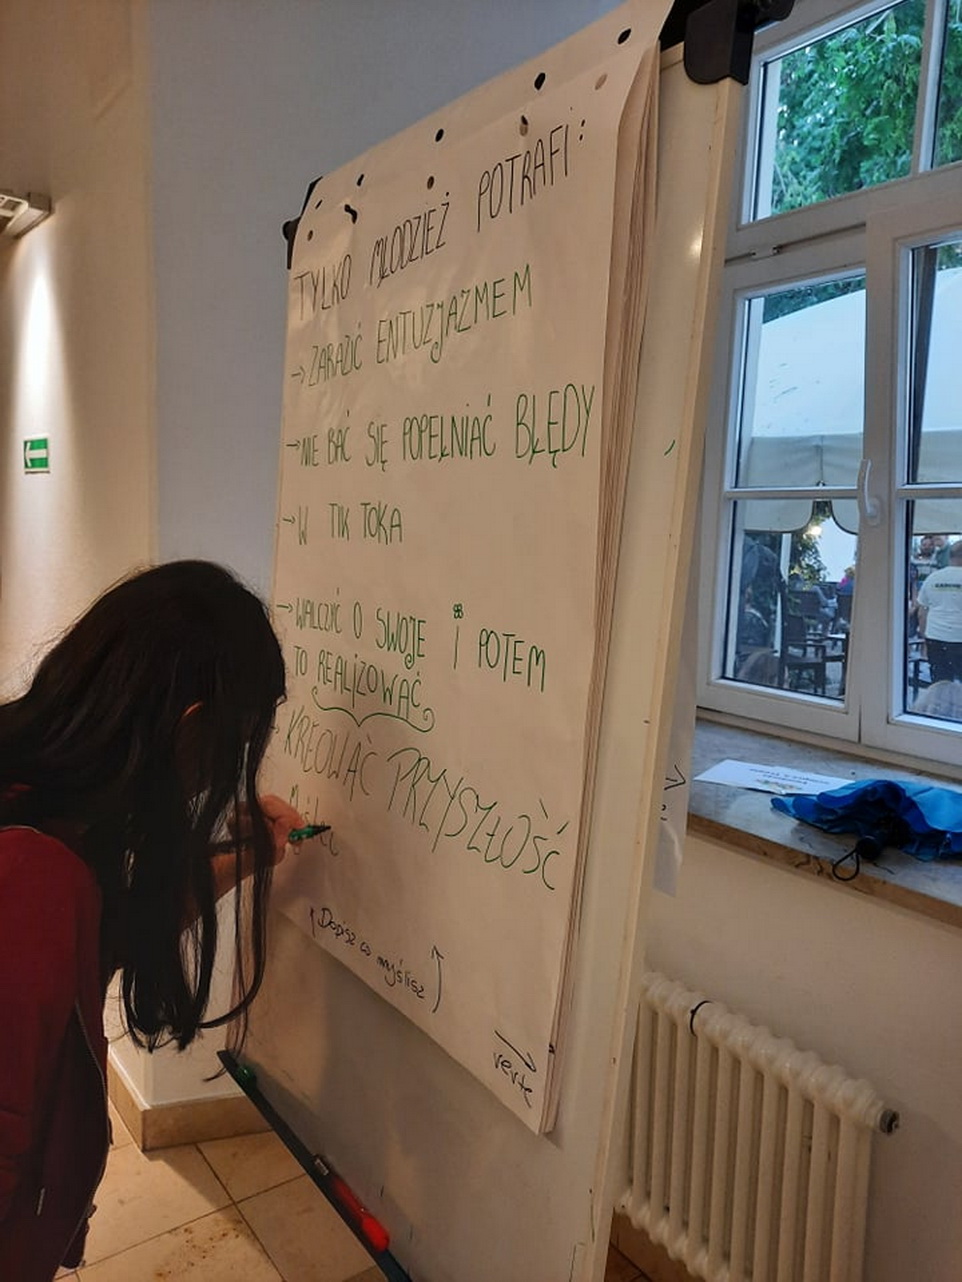 TYLKO MŁODZIEŻ POTRAFI:
→ ZARAZIĆ ENTUZJAZMEM
→ NIE BAĆ SIĘ POPEŁNIAĆ BŁĘDY
→ W TIK TOKA
→ WALCZYĆ O SWOJE i POTEM
TO REALIZOWAĆ
KREOWAĆ PRZYSZŁOŚĆ
Dopisz co myślisz
verte